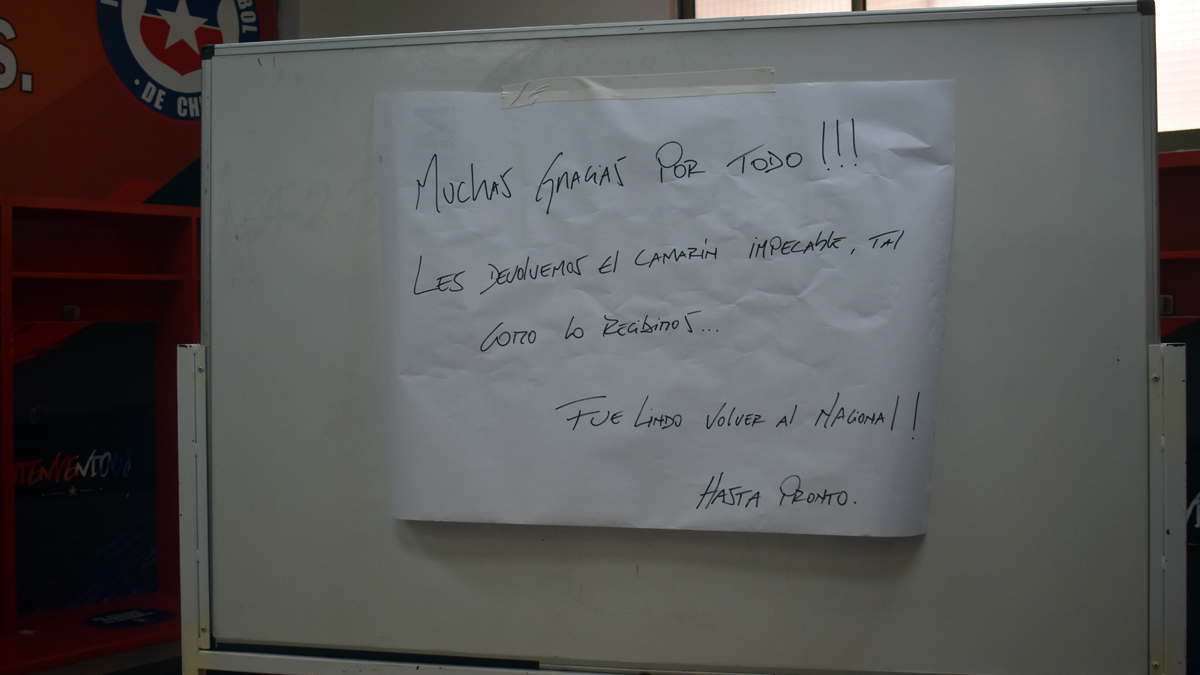 S.
BOL
DE CH
MUCHAS GRACIAS POR TODO!!!
LES DEVOLVEMOS El CAMARÍN IMPECABLE, TAl
COMO LO RECIBIMOS...
FUE LINDO VOLVER Al NACIONAl!
HASTA PRONTO.
BIENVENIDOS